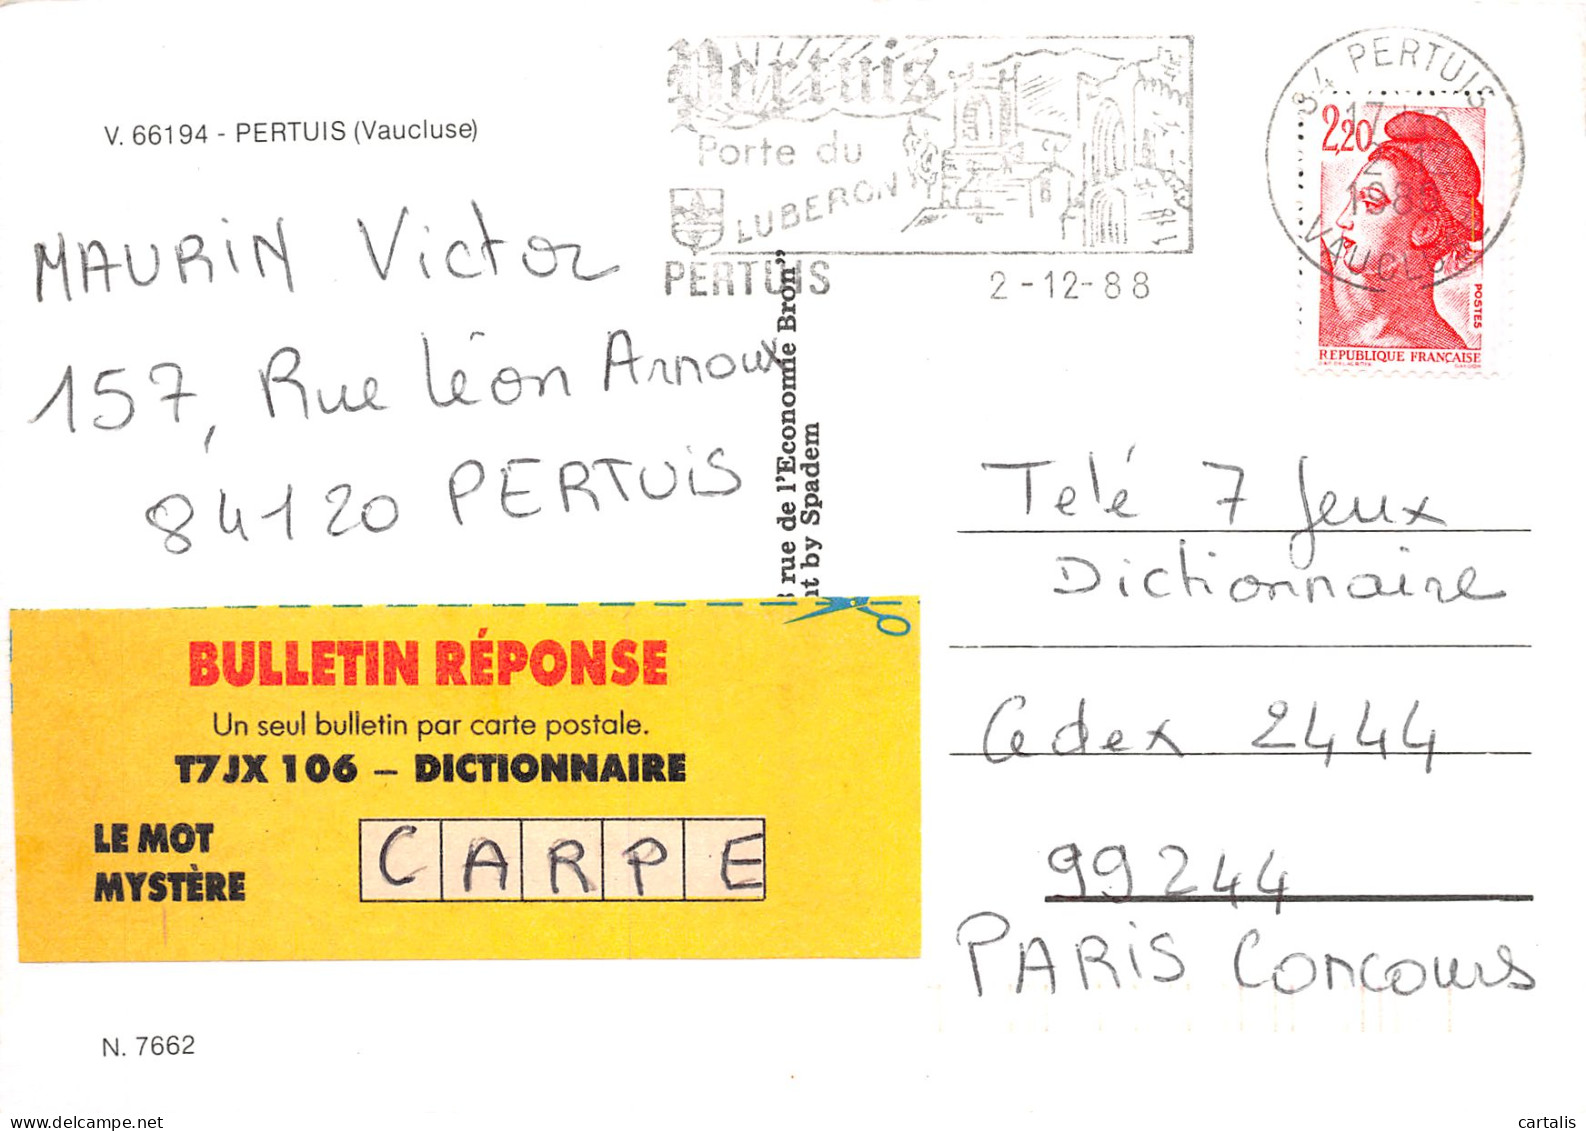 V. 66194 - PERTUIS (Vaucluse)
Pertuis
Porte du
LUBERON
PERTUIS
2-12-88
84 PERTUIS
VAUCLUSE
2,20
POSTES
RÉPUBLIQUE FRANÇAISE
MAURIN Victor
157, Rue Léon Arnoux
84120 PERTUIS
rue de l'Economie Bron"
by Spadem
Telé 7 Jeux
Dictionnaire
Cedex 2444
99244
PARIS Concours
BULLETIN RÉPONSE
Un seul bulletin par carte postale.
T7JX 106 – DICTIONNAIRE
LE MOT
MYSTÈRE
CARPE
N. 7662
www.delcampe.net
cartalis